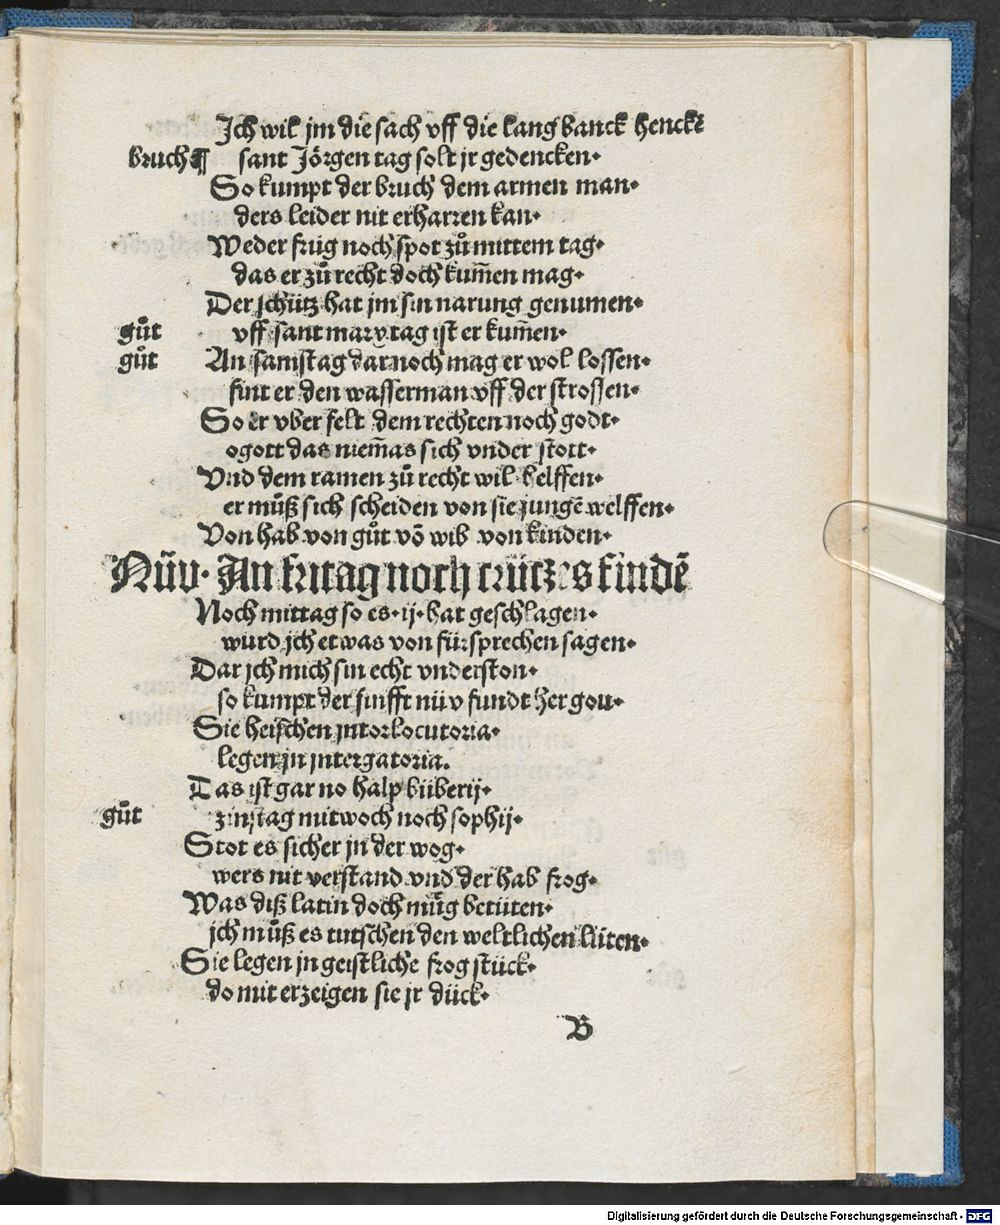 Jch wil jm die sach vff die lang banck henckē
bruch¶ sant Jörgen tag solt jr gedencken·
So kumpt der bruch dem armen man·
ders leider nit erharren kan·
Weder früg noch spot zů mittem tag·
das er zů recht doch kum̄en mag·
Der schütz hat jm sin narung genumen·
gůt vff sant marx tag ist er kum̄en·
gůt An samstag dar noch mag er wol lossen·
fint er den wasserman vff der strossen·
So er vber felt dem rechten noch godt·
o gott das niem̄as sich vnder stott·
Vnd dem ramen zů recht wil helffen·
er můß sich scheiden von sie jungē welffen·
Von hab von gůt vō wib von kinden·
Nüv· An fritag noch crützes findē
Noch mittag so es·ij·hat geschlagen·
wurd jch etwas von fürsprechen sagen·
Dar jch mich sin echt vnderston·
so kumpt der finfft nüv fundt her gon·
Sie heischen jntorlocutoria·
legen jn jntergatoria.
Das ist gar no halp büberij·
gůt zinstag mitwoch noch sophij·
Stot es sicher jn der wog·
wers nit verstand vnd der hab frog·
Was diß latin doch müg betüten·
jch můß es tutschen den weltlichen lüten·
Sie legen jn geistliche frog stück·
do mit erzeigen sie jr dück·
B
Digitalisierung gefördert durch die Deutsche Forschungsgemeinschaft - DFG